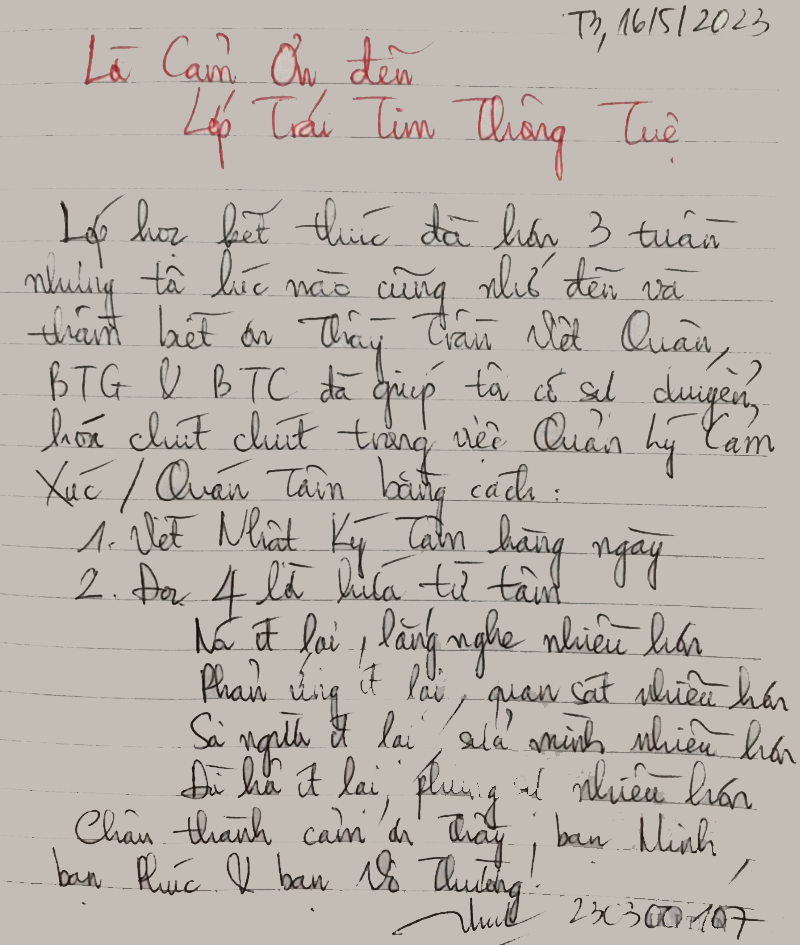 T3, 16/5/2023
Lời Cảm Ơn đến
Lớp Trái Tim Thông Tuệ
Lớp học kết thúc đã hơn 3 tuần
nhưng tôi lúc nào cũng nhớ đến và
thầm biết ơn Thầy Trần Việt Quân,
BTG & BTC đã giúp tôi có sự chuyển
hóa chút chút trong việc Quản lý Cảm
Xúc / Quán Tâm bằng cách:
1. Viết Nhật Ký Tâm hàng ngày
2. Đọc 4 lời hứa từ tâm
Nói ít lại, lắng nghe nhiều hơn
Phản ứng ít lại, quan sát nhiều hơn
Sửa người ít lại, sửa mình nhiều hơn
Đòi hỏi ít lại, phụng sự nhiều hơn
Chân thành cảm ơn Thầy, bạn Minh,
bạn Phúc & bạn Vô Thường!
23C300107